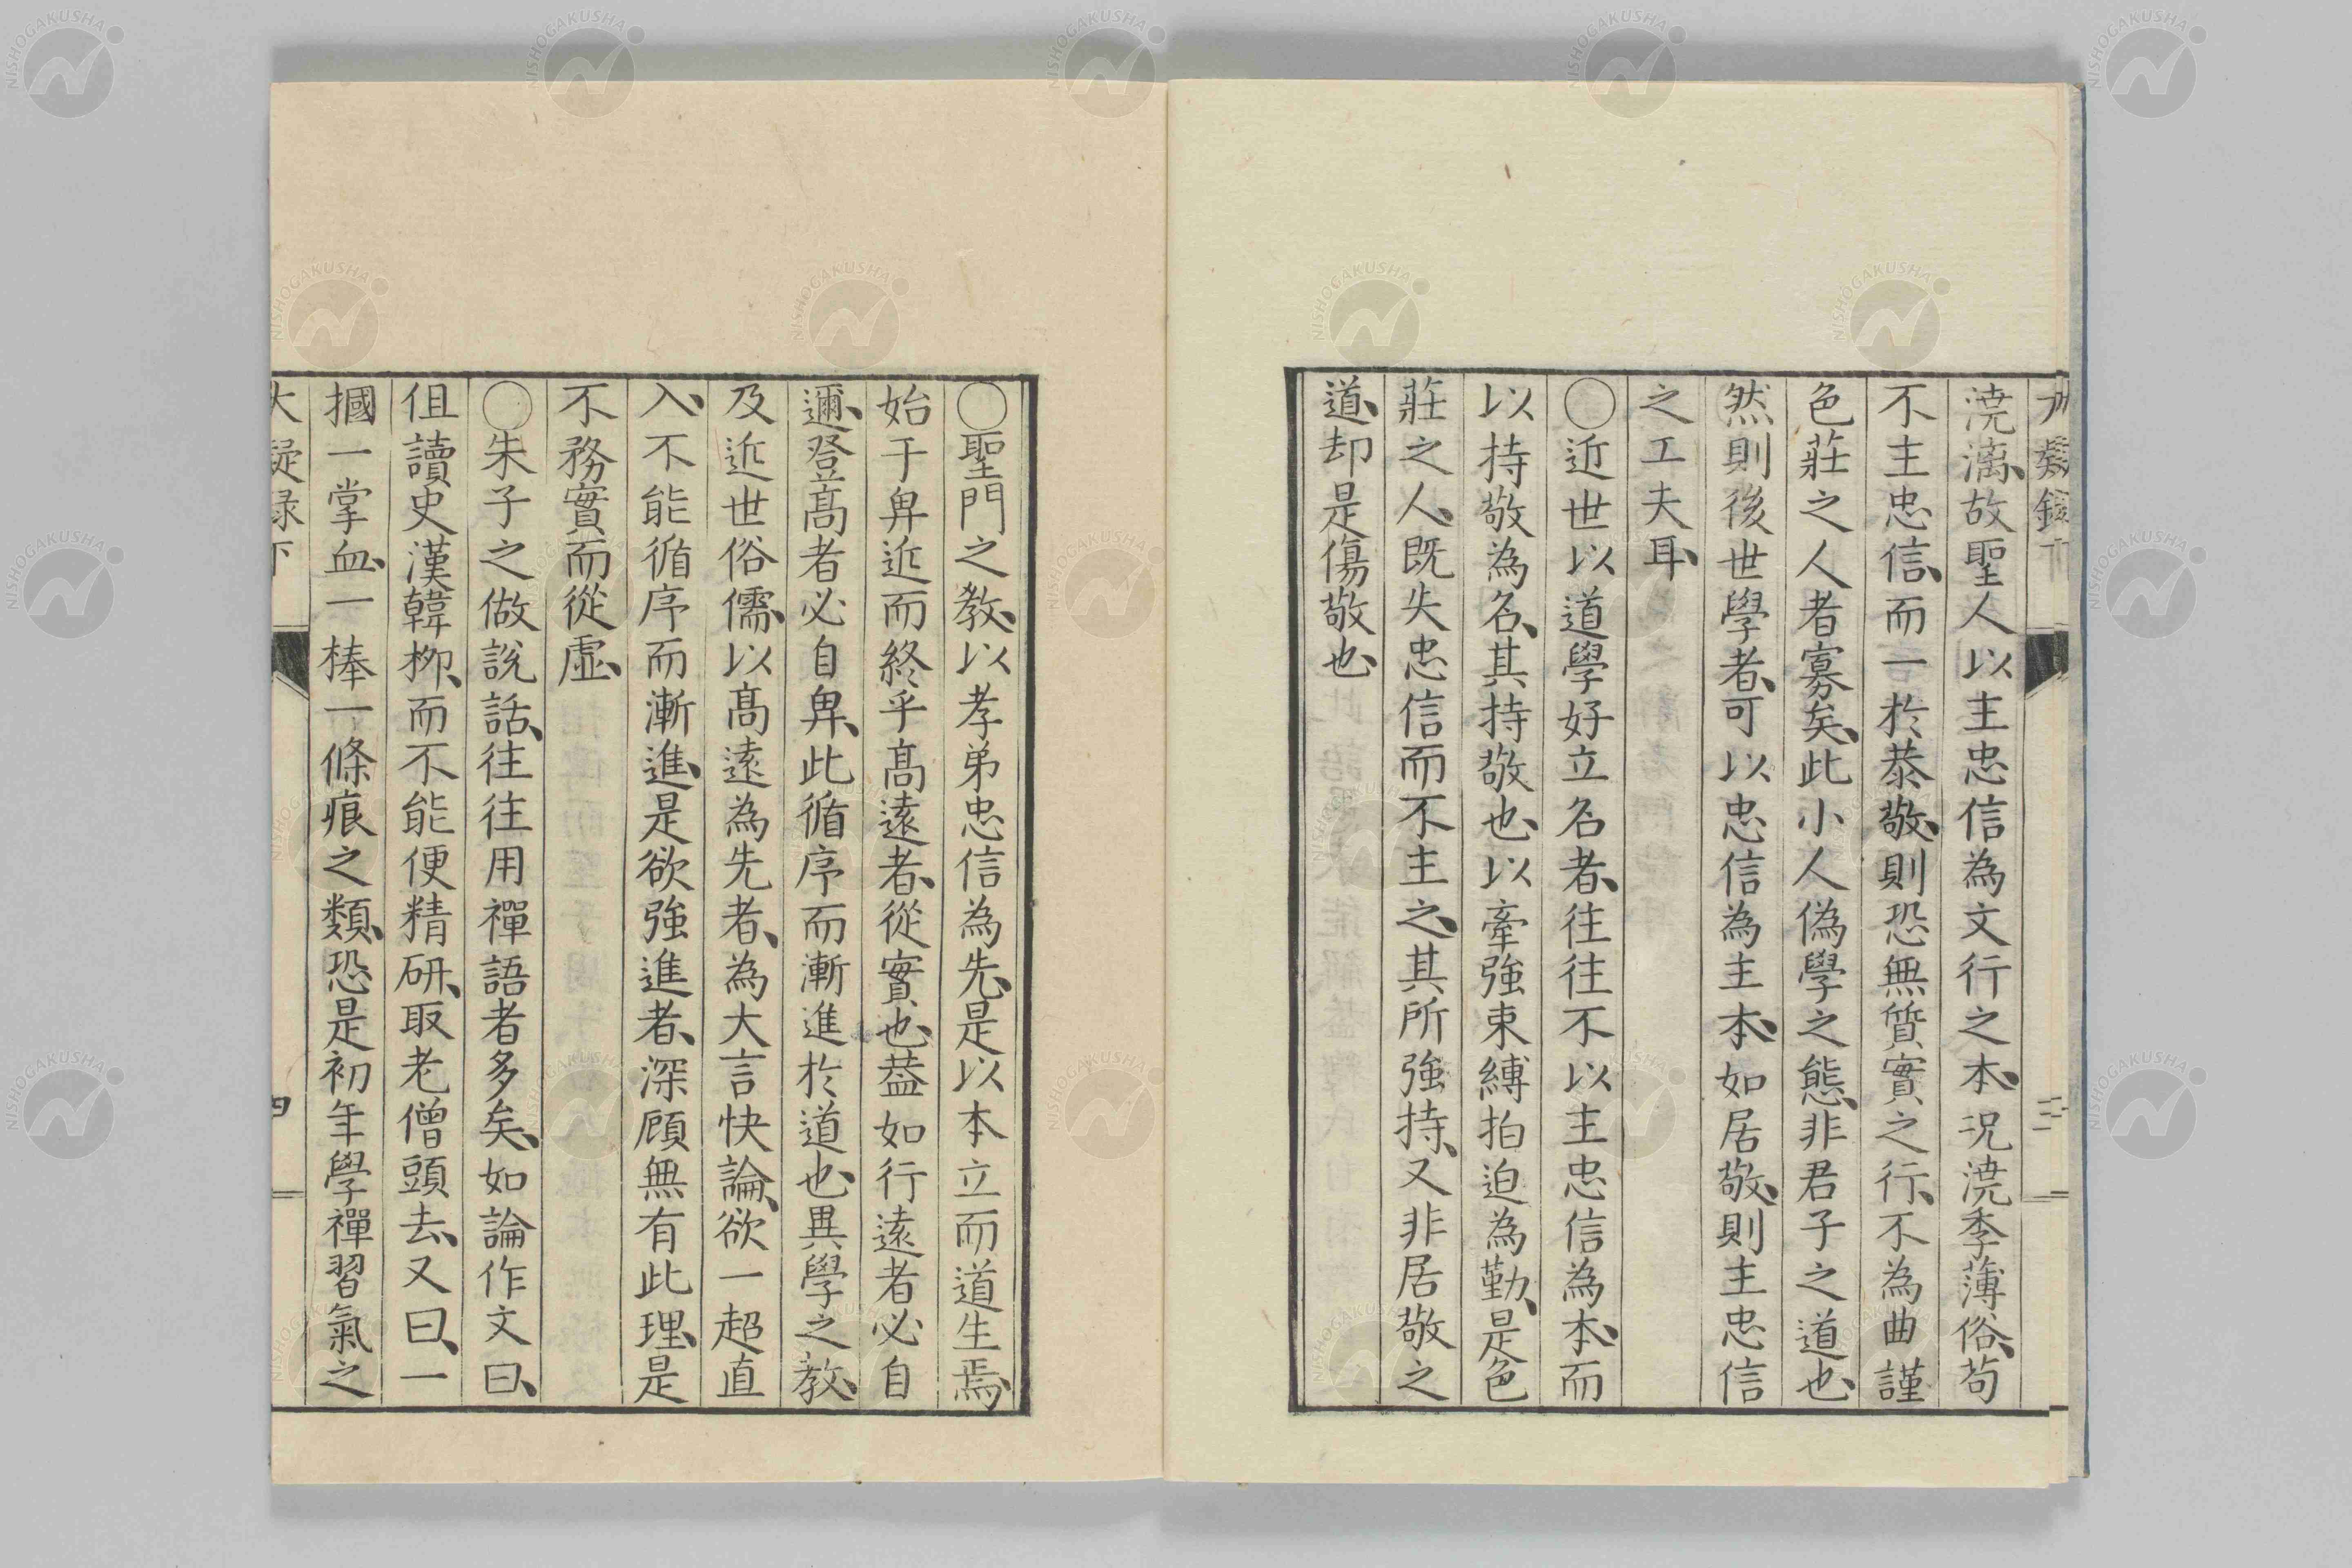 澆漓、故聖人以主忠信為文行之本、況澆季薄俗、苟
不主忠信、而一於恭敬、則恐無質實之行、不為曲謹
色莊之人者寡矣、此小人偽學之態、非君子之道也、
然則後世學者、可以忠信為主本、如居敬、則主忠信
之工夫耳、
○近世以道學好立名者、往往不以主忠信為本、而
以持敬為名、其持敬也、以牽強束縛拍迫為勤、是色
莊之人、既失忠信而不主之、其所強持、又非居敬之
道、却是傷敬也、
○聖門之教、以孝弟忠信為先、是以本立而道生焉、
始于卑近而終乎高遠者、從實也、蓋如行遠者必自
邇、登高者必自卑、此循序而漸進於道也、異學之教、
及近世俗儒、以高遠為先者、為大言快論、欲一超直
入、不能循序而漸進、是欲強進者、深顧無有此理、是
不務實而從虛、
○朱子之做說話、往往用禪語者多矣、如論作文曰、
但讀史漢韓柳、而不能便精研、取老僧頭去、又曰、一
摑一掌血、一棒一條痕之類、恐是初年學禪習氣之
大疑録下
四
NISHOGAKUSHA